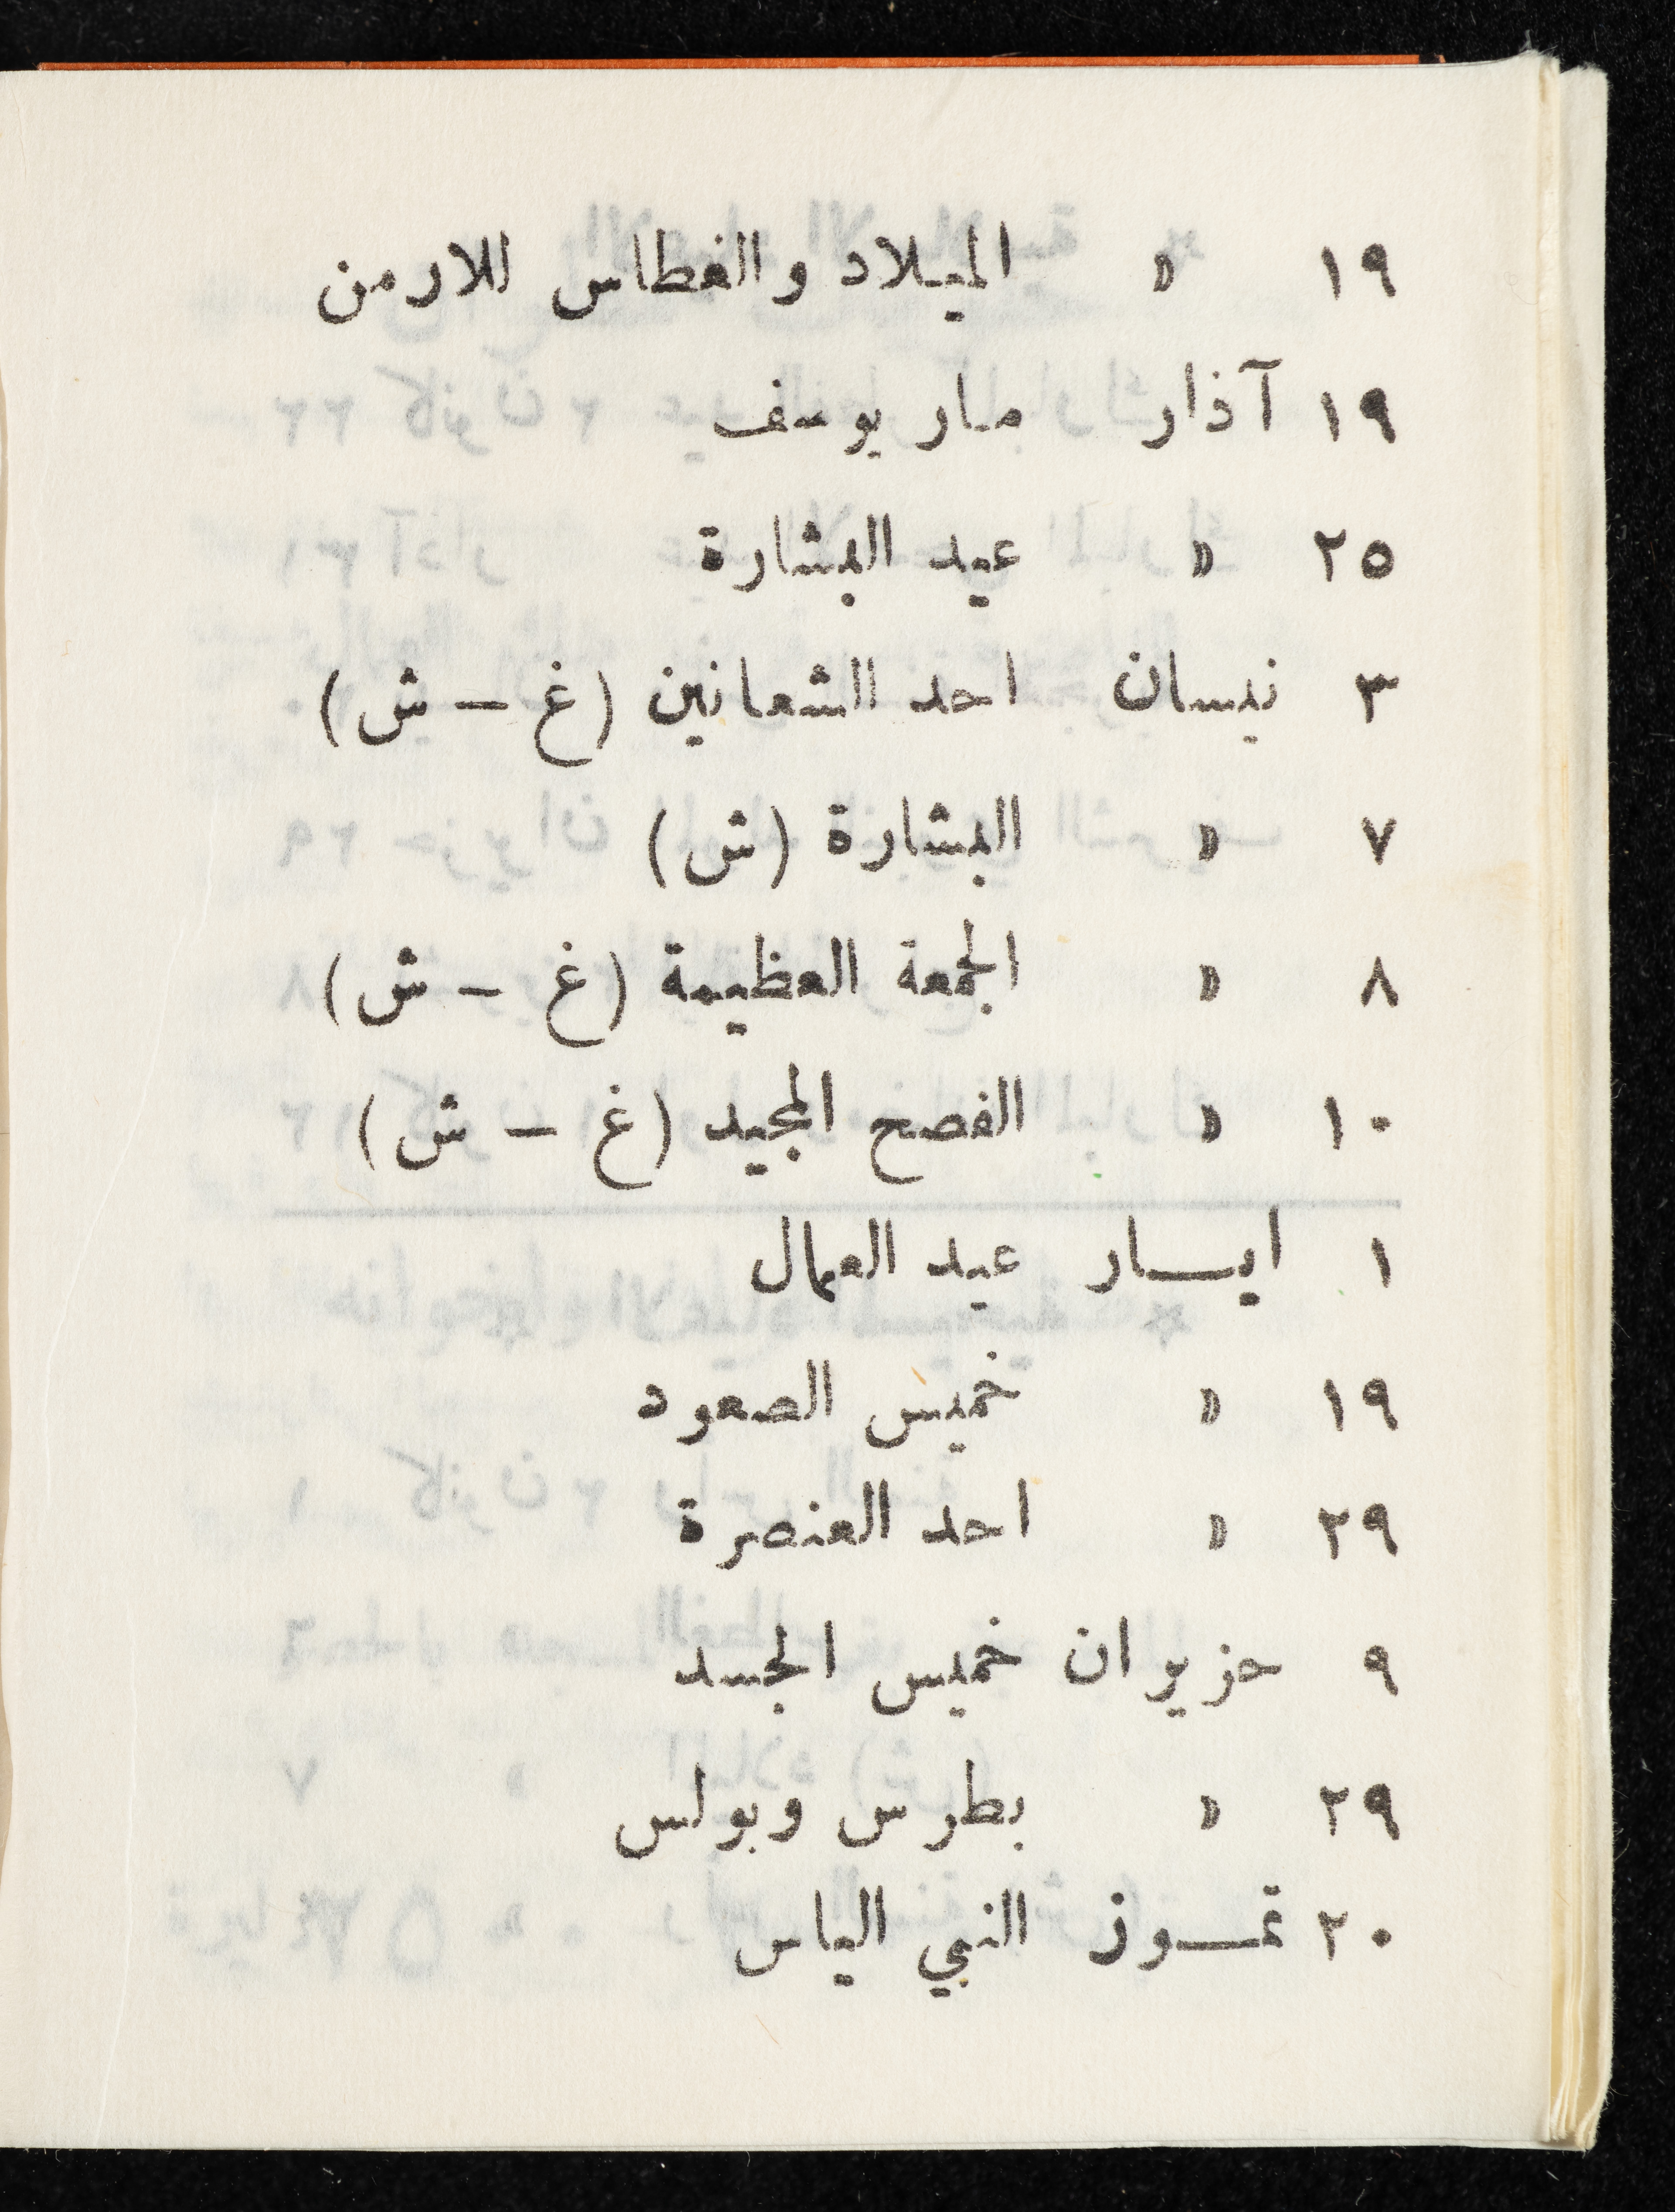 ١٩ » الميلاد والغطاس للارمن
١٩ آذار مار يوسف
٢٥ » عيد البشارة
٣ نيسان احد الشعانين (غ – ش)
٧ » البشارة (ش)
٨ » الجمعة العظيمة (غ – ش)
١٠ » الفصح المجيد (غ – ش)
١ ايــار عيد العمال
١٩ » خميس الصعود
٢٩ » احد العنصرة
٩ حزيران خميس الجسد
٢٩ » بطرس وبولس
٢٠ تمــوز النبي الياس